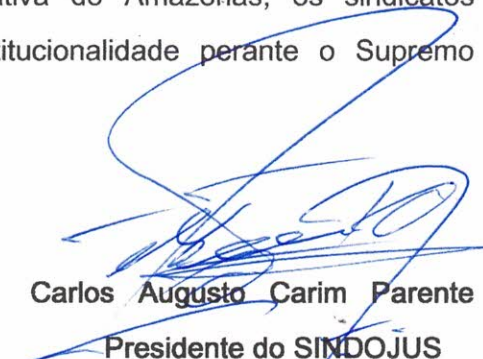 tiva do Amazonas, os sindicatos
titucionalidade perante o Supremo
Carlos Augusto Carim Parente
Presidente do SINDOJUS